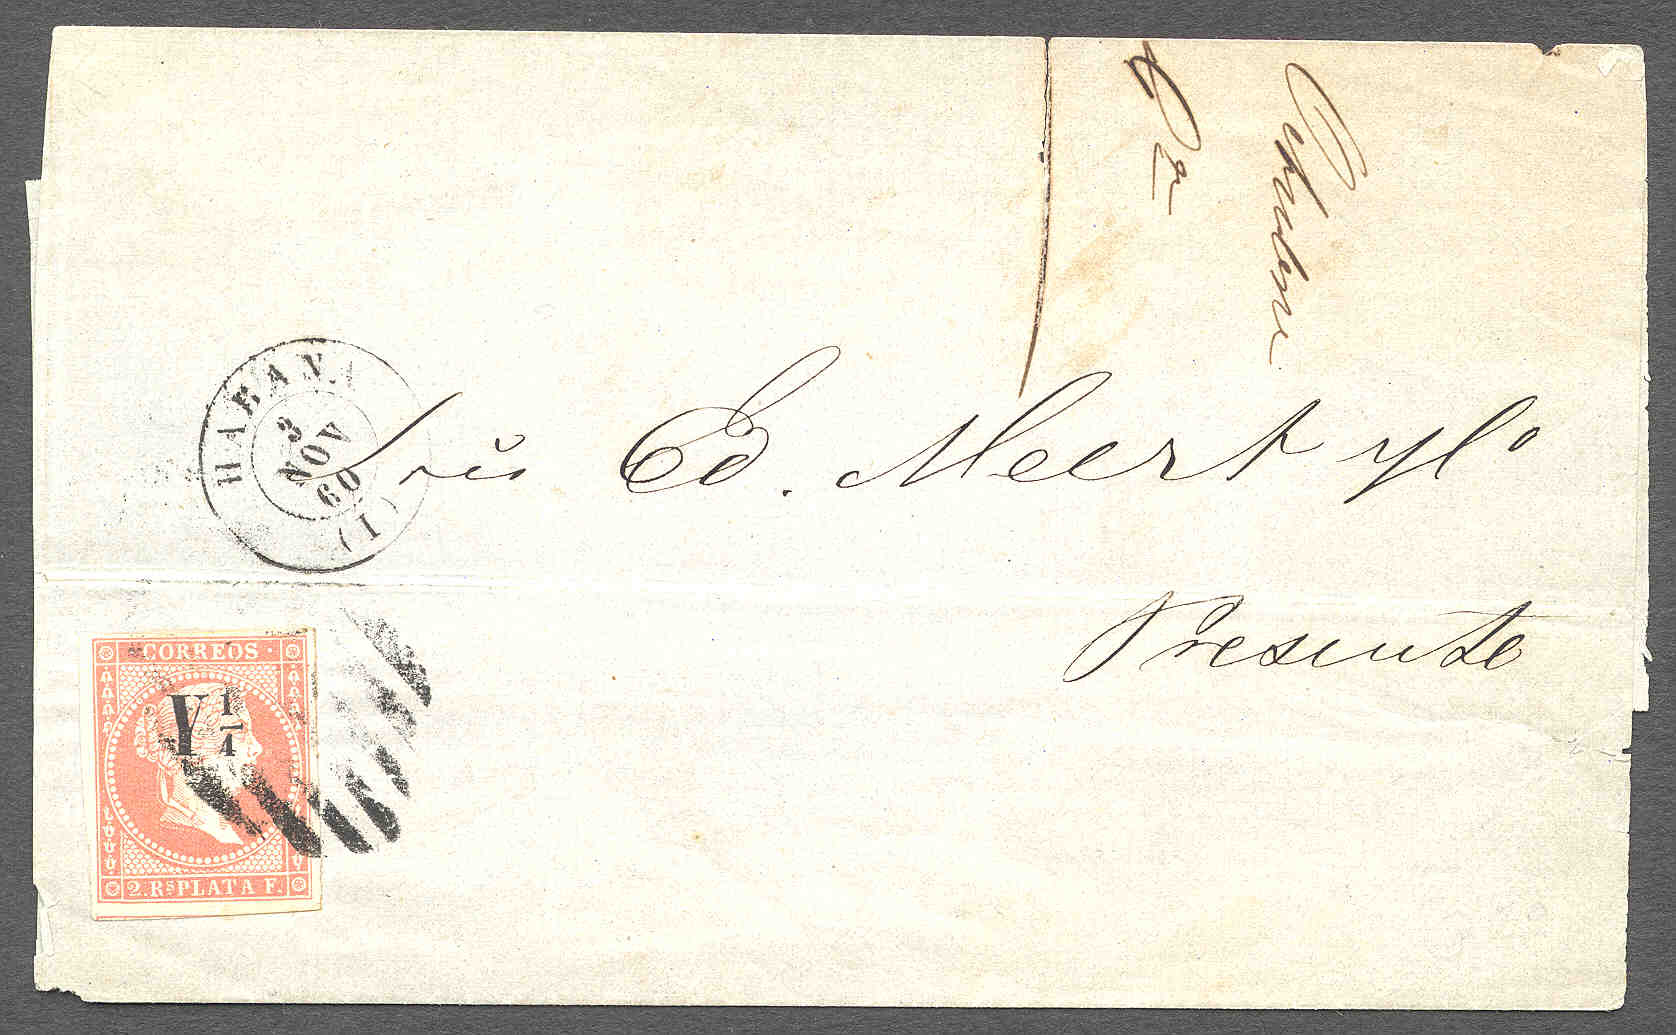 HABANA
3
NOV
60
(1)
Sres Ed. Meert y Cº
Presente
CORREOS
Y 1/4
2. Rs PLATA F.